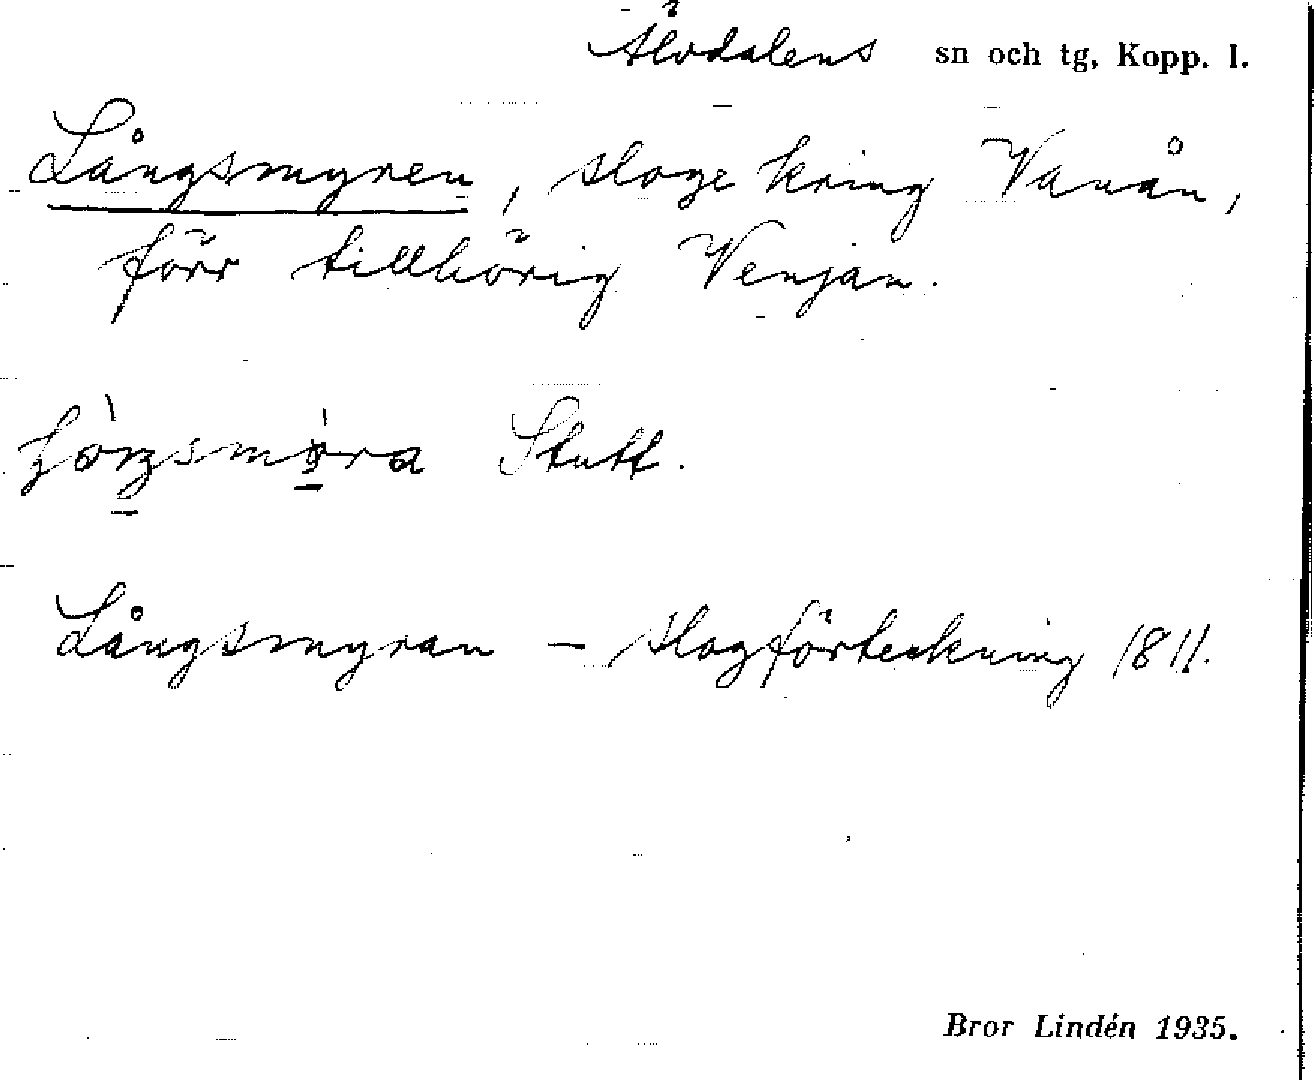 Älvdalens sn och tg, Kopp. l.
Långsmyren, sloge kring Vanån,
förr tillhörig Venjan.
Stutt.
Långsmyran – slogförteckning 1811.
Bror Lindén 1935.